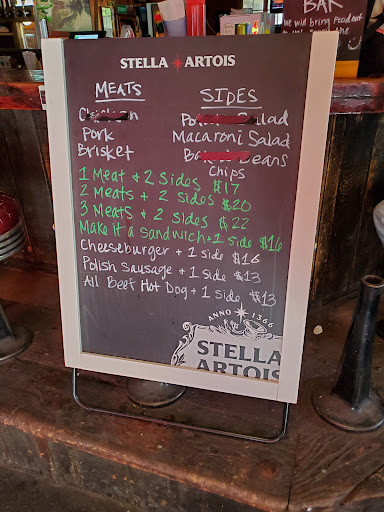 BAR
We will bring food out
STELLA ARTOIS
MEATS
Chicken
Pork
Brisket
SIDES
Potato Salad
Macaroni Salad
Baked Beans
Chips
1 Meat + 2 Sides $17
2 Meats + 2 sides $20
3 Meats + 2 sides $22
Make it a sandwich + 1 side $16
Cheeseburger + 1 side $16
Polish Sausage + 1 side $13
All Beef Hot Dog + 1 side $13
ANNO 1366
STELLA
ARTOIS